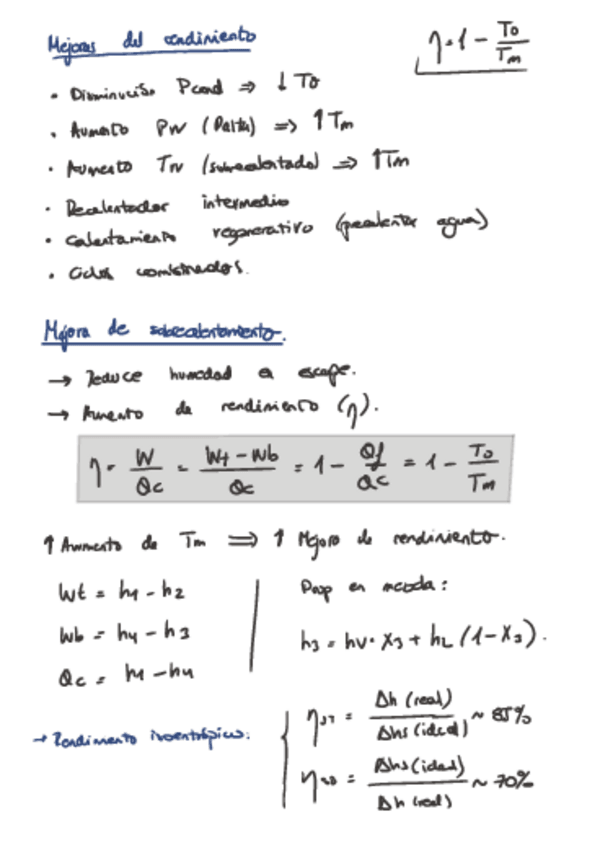 Mejoras del rendimiento
η = 1 - To/Tm
• Disminución Pcond ⇒ ↓ To
• Aumento PN (Palta) ⇒ ↑ Tm
• Aumento TN (sobrecalentado) ⇒ ↑ Tm
• Recalentador intermedio
• Calentamiento regenerativo (precalentar agua)
• Ciclos combinados.
Mejora de sobrecalentamiento.
→ Reduce humedad a escape.
→ Aumento de rendimiento (η).
η = W/Qc = (Wt - Wb)/Qc = 1 - Qf/Qc = 1 - To/Tm
↑ Aumento de Tm ⇒ ↑ Mejora de rendimiento.
Wt = h1 - h2
Wb = h4 - h3
Qc = h1 - h4
Prop en mezcla:
h3 = hv · X3 + hL (1 - X3).
→ Rendimiento isoentrópico:
Δh (real) / Δhs (ideal) ~ 85%
Δhs (ideal) / Δh (real) ~ 70%